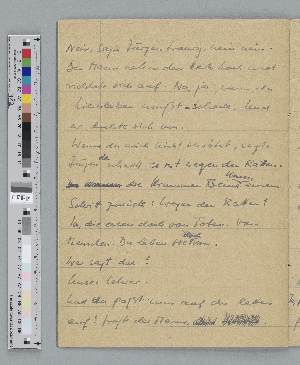 Nein, sagte Jürgen traurig, nein nein.
Der Mann nahm den Korb hoch und
richtete sich auf. Na ja, wenn du
hierbleiben mußt – schade. Und
er drehte sich um.
Wenn du mich nicht verrätst, sagte
Jürgen da schnell, es ist wegen der Ratten.
Die krummen Beine kamen einen
Schritt zurück: Wegen der Ratten?
Ja, die essen doch von Toten. Von
Menschen. Da leben sie doch von.
Wer sagt das?
Unser Lehrer.
Und du paßt nun auf die Ratten
auf? fragte der Mann.